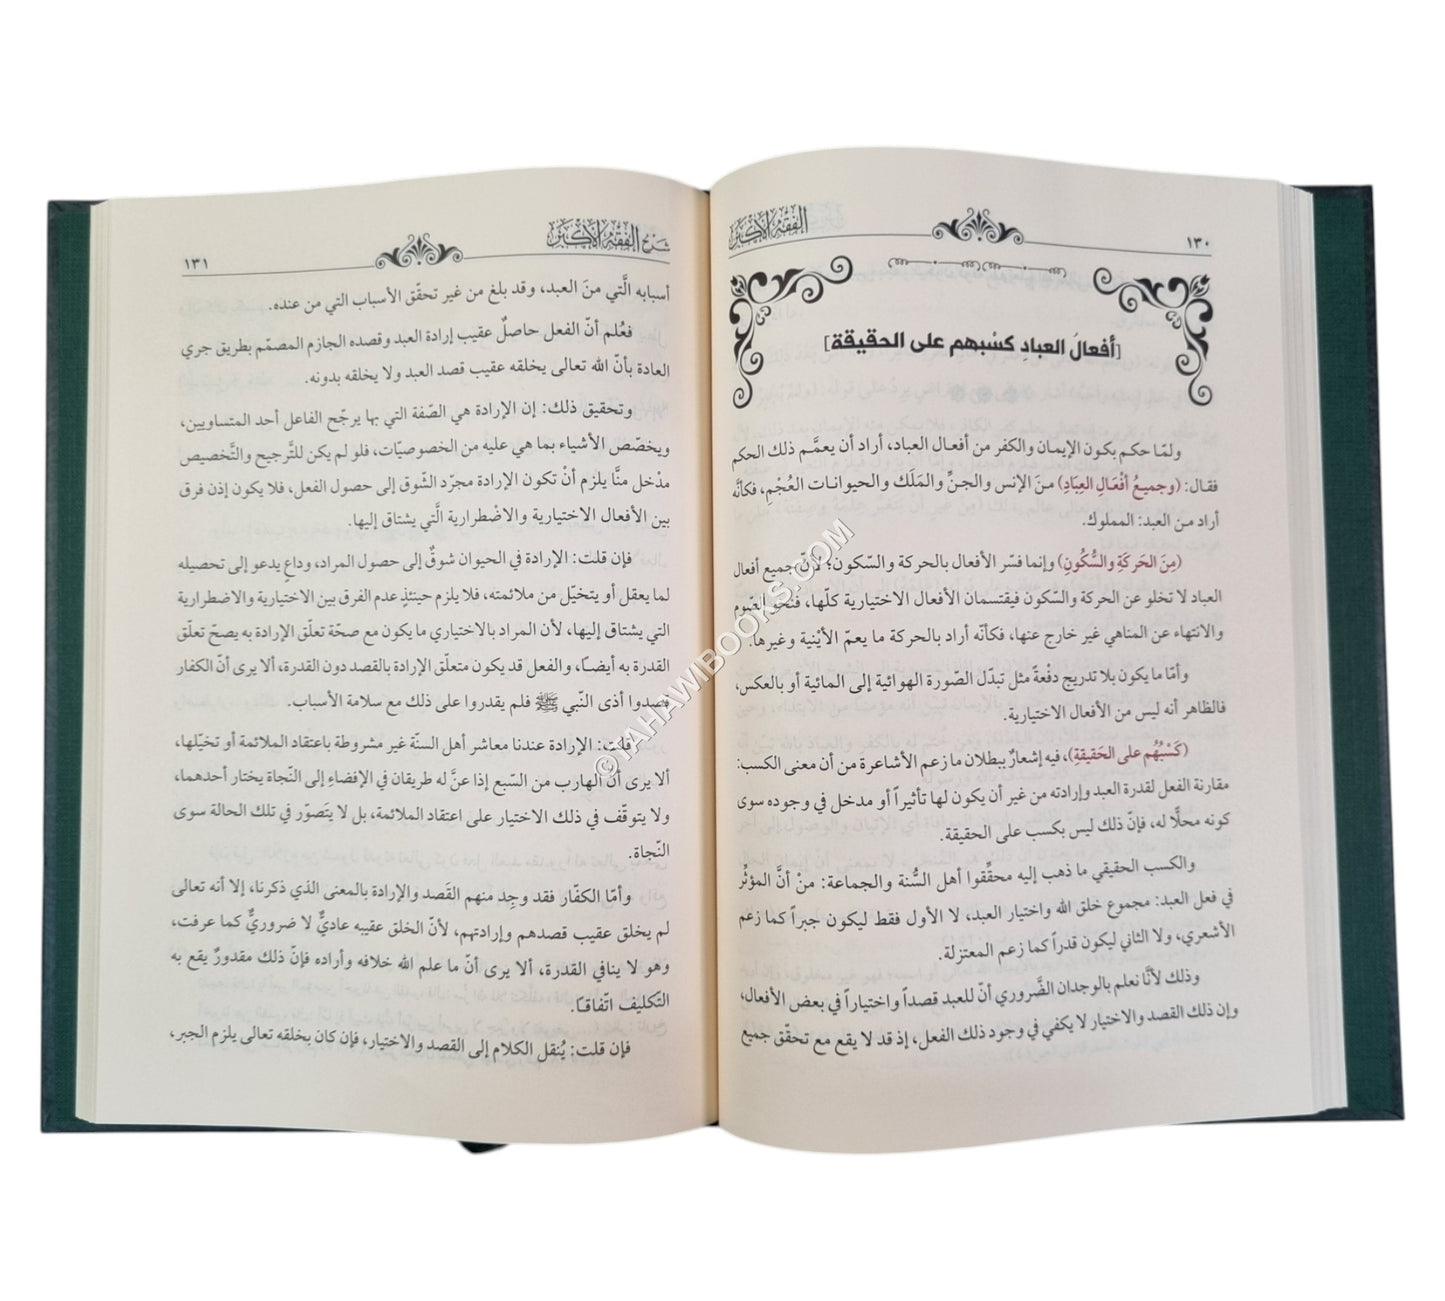 ١٣٠
الفقه الأكبر
[أفعالَ العبادِ كسْبهم على الحقيقة]
ولمّا حكم بكون الإيمان والكفر من أفعال العباد، أراد أن يعمَّم ذلك الحكم
فقال: (وجميعُ أفْعَالِ العِبَادِ) منَ الإنس والجنِّ والمَلَك والحيوانات العُجْمِ، فكأنَّه
أراد من العبد: المملوك.
(مِنَ الحَركَةِ والسُّكُونِ) وإنما فسّر الأفعال بالحركة والسّكون؛ لأنّ جميع أفعال
العباد لا تخلو عن الحركة والسّكون فيقتسمان الأفعال الاختيارية كلّها، فنحو الصّوم
والانتهاء عن المناهي غير خارج عنها، فكأنّه أراد بالحركة ما يعمّ الأيْنية وغيرها.
وأمّا ما يكون بلا تدريج دفْعةً مثل تبدّل الصّورة الهوائية إلى المائية أو بالعكس،
فالظاهر أنه ليس من الأفعال الاختيارية.
(كَسْبُهُم على الحَقيقةِ)، فيه إشعارٌ ببطلان ما زعم الأشاعرة من أن معنى الكسب:
مقارنة الفعل لقدرة العبد وإرادته من غير أن يكون لها تأثيراً أو مدخل في وجوده سوى
كونه محلًّا له، فإنّ ذلك ليس بكسب على الحقيقة.
والكسب الحقيقي ما ذهب إليه محقِّقوا أهل السُّنة والجماعة: منْ أنَّ المؤثِّر
في فعل العبد: مجموع خلق الله واختيار العبد، لا الأول فقط ليكون جبراً كما زعم
الأشعري، ولا الثاني ليكون قدراً كما زعم المعتزلة.
وذلك لأنَّا نعلم بالوجدان الضَّروري أنّ للعبد قصداً واختياراً في بعض الأفعال،
وإن ذلك القصد والاختيار لا يكفي في وجود ذلك الفعل، إذ قد لا يقع مع تحقّق جميع
شرح الفقه الأكبر
١٣١
أسبابه الَّتي منَ العبد، وقد بلغ من غير تحقّق الأسباب التي من عنده.
فعُلم أنّ الفعل حاصلٌ عقيب إرادة العبد وقصده الجازم المصمّم بطريق جري
العادة بأنّ الله تعالى يخلقه عقيب قصد العبد ولا يخلقه بدونه.
وتحقيق ذلك: إن الإرادة هي الصّفة التي بها يرجّح الفاعل أحد المتساويين،
ويخصّص الأشياء بما هي عليه من الخصوصيّات، فلو لم يكن للتَّرجيح والتَّخصيص
مدْخل منَّا يلزم أنْ تكون الإرادة مجرّد الشّوق إلى حصول الفعل، فلا يكون إذن فرق
بين الأفعال الاختيارية والاضْطرارية الَّتي يشتاق إليها.
فإن قلت: الإرادة في الحيوان شوقٌ إلى حصول المراد، وداعٍ يدعو إلى تحصيله
لما يعقل أو يتخيّل من ملائمته، فلا يلزم حينئذٍ عدم الفرق بين الاختيارية والاضطرارية
التي يشتاق إليها، لأن المراد بالاختياري ما يكون مع صحّة تعلّق الإرادة به يصحّ تعلّق
القدرة به أيضاً، والفعل قد يكون متعلّق الإرادة بالقصد دون القدرة، ألا يرى أنّ الكفار
قصدوا أذى النّبي ﷺ فلم يقدروا على ذلك مع سلامة الأسباب.
قلت: الإرادة عندنا معاشر أهل السنّة غير مشروطة باعتقاد الملائمة أو تخيّلها،
ألا يرى أنّ الهارب من السّبع إذا عنَّ له طريقان في الإفضاء إلى النّجاة يختار أحدهما،
ولا يتوقّف في ذلك الاختيار على اعتقاد الملائمة، بل لا يَتصوّر في تلك الحالة سوى
النّجاة.
وأمّا الكفّار فقد وجِد منهم القَصد والإرادة بالمعنى الذي ذكرنا، إلا أنه تعالى
لم يخلق عقيب قصدهم وإرادتهم، لأنّ الخلق عقيبه عاديٌّ لا ضروريٌّ كما عرفت،
وهو لا ينافي القدرة، ألا يرى أنّ ما علم الله خلافه وأراده فإنّ ذلك مقدورٌ يقع به
التّكليف اتّفاقاً.
فإن قلت: يُنقل الكلام إلى القصد والاختيار، فإن كان بخلقه تعالى يلزم الجبر،
©TAHAWIBOOKS.COM